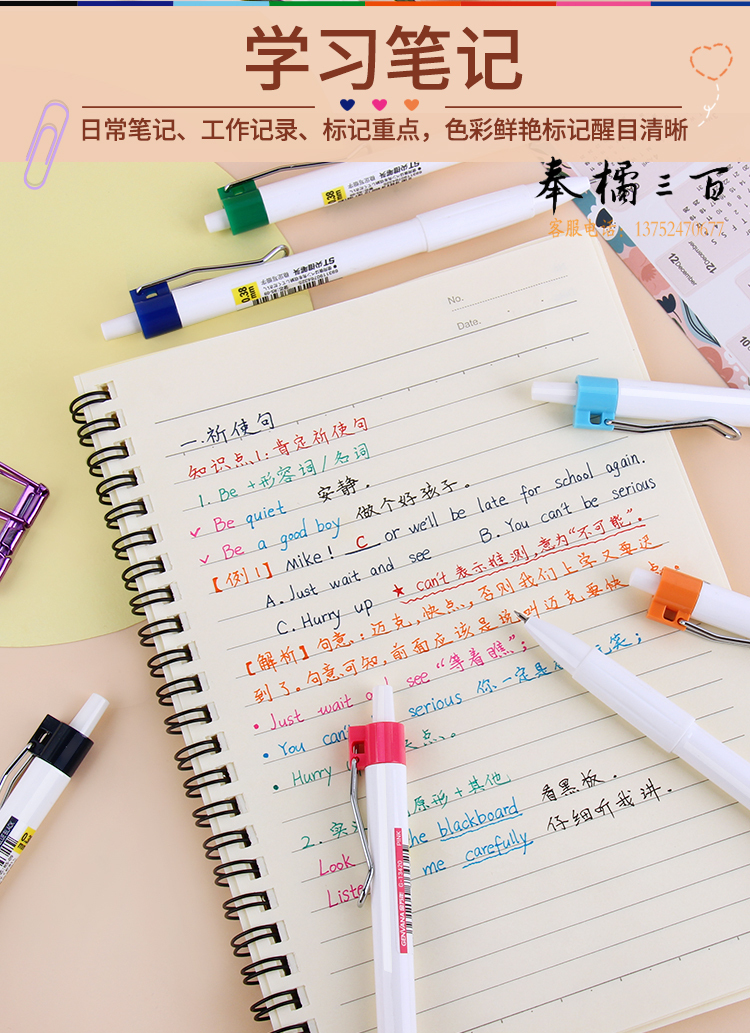 学习笔记
日常笔记、工作记录、标记重点，色彩鲜艳标记醒目清晰
奉橘三百
客服电话：13752470677
0.38
ST尖细笔头
0.38 mm
ST尖细笔头
12 December
No.
Date.
一.祈使句
知识点1:肯定祈使句
1. Be +形容词/名词
Be quiet 安静.
Be a good boy 做个好孩子.
【例1】Mike! C or we'll be late for school again.
A. Just wait and see B. You can't be serious
C. Hurry up ★ can't 表示推测,意为"不可能".
【解析】句意:迈克,快点,否则我们上学又要迟
到了.句意可知,前面应该是说叫迈克要快点.
• Just wait see "等着瞧";
• You can't serious 你一定是 玩笑;
• Hurry 快点.
2. 原形+其他
Look the blackboard 看黑板.
Listen me carefully 仔细听我讲.
GENVANA
G-1342D
PINK
BLUE BLACK